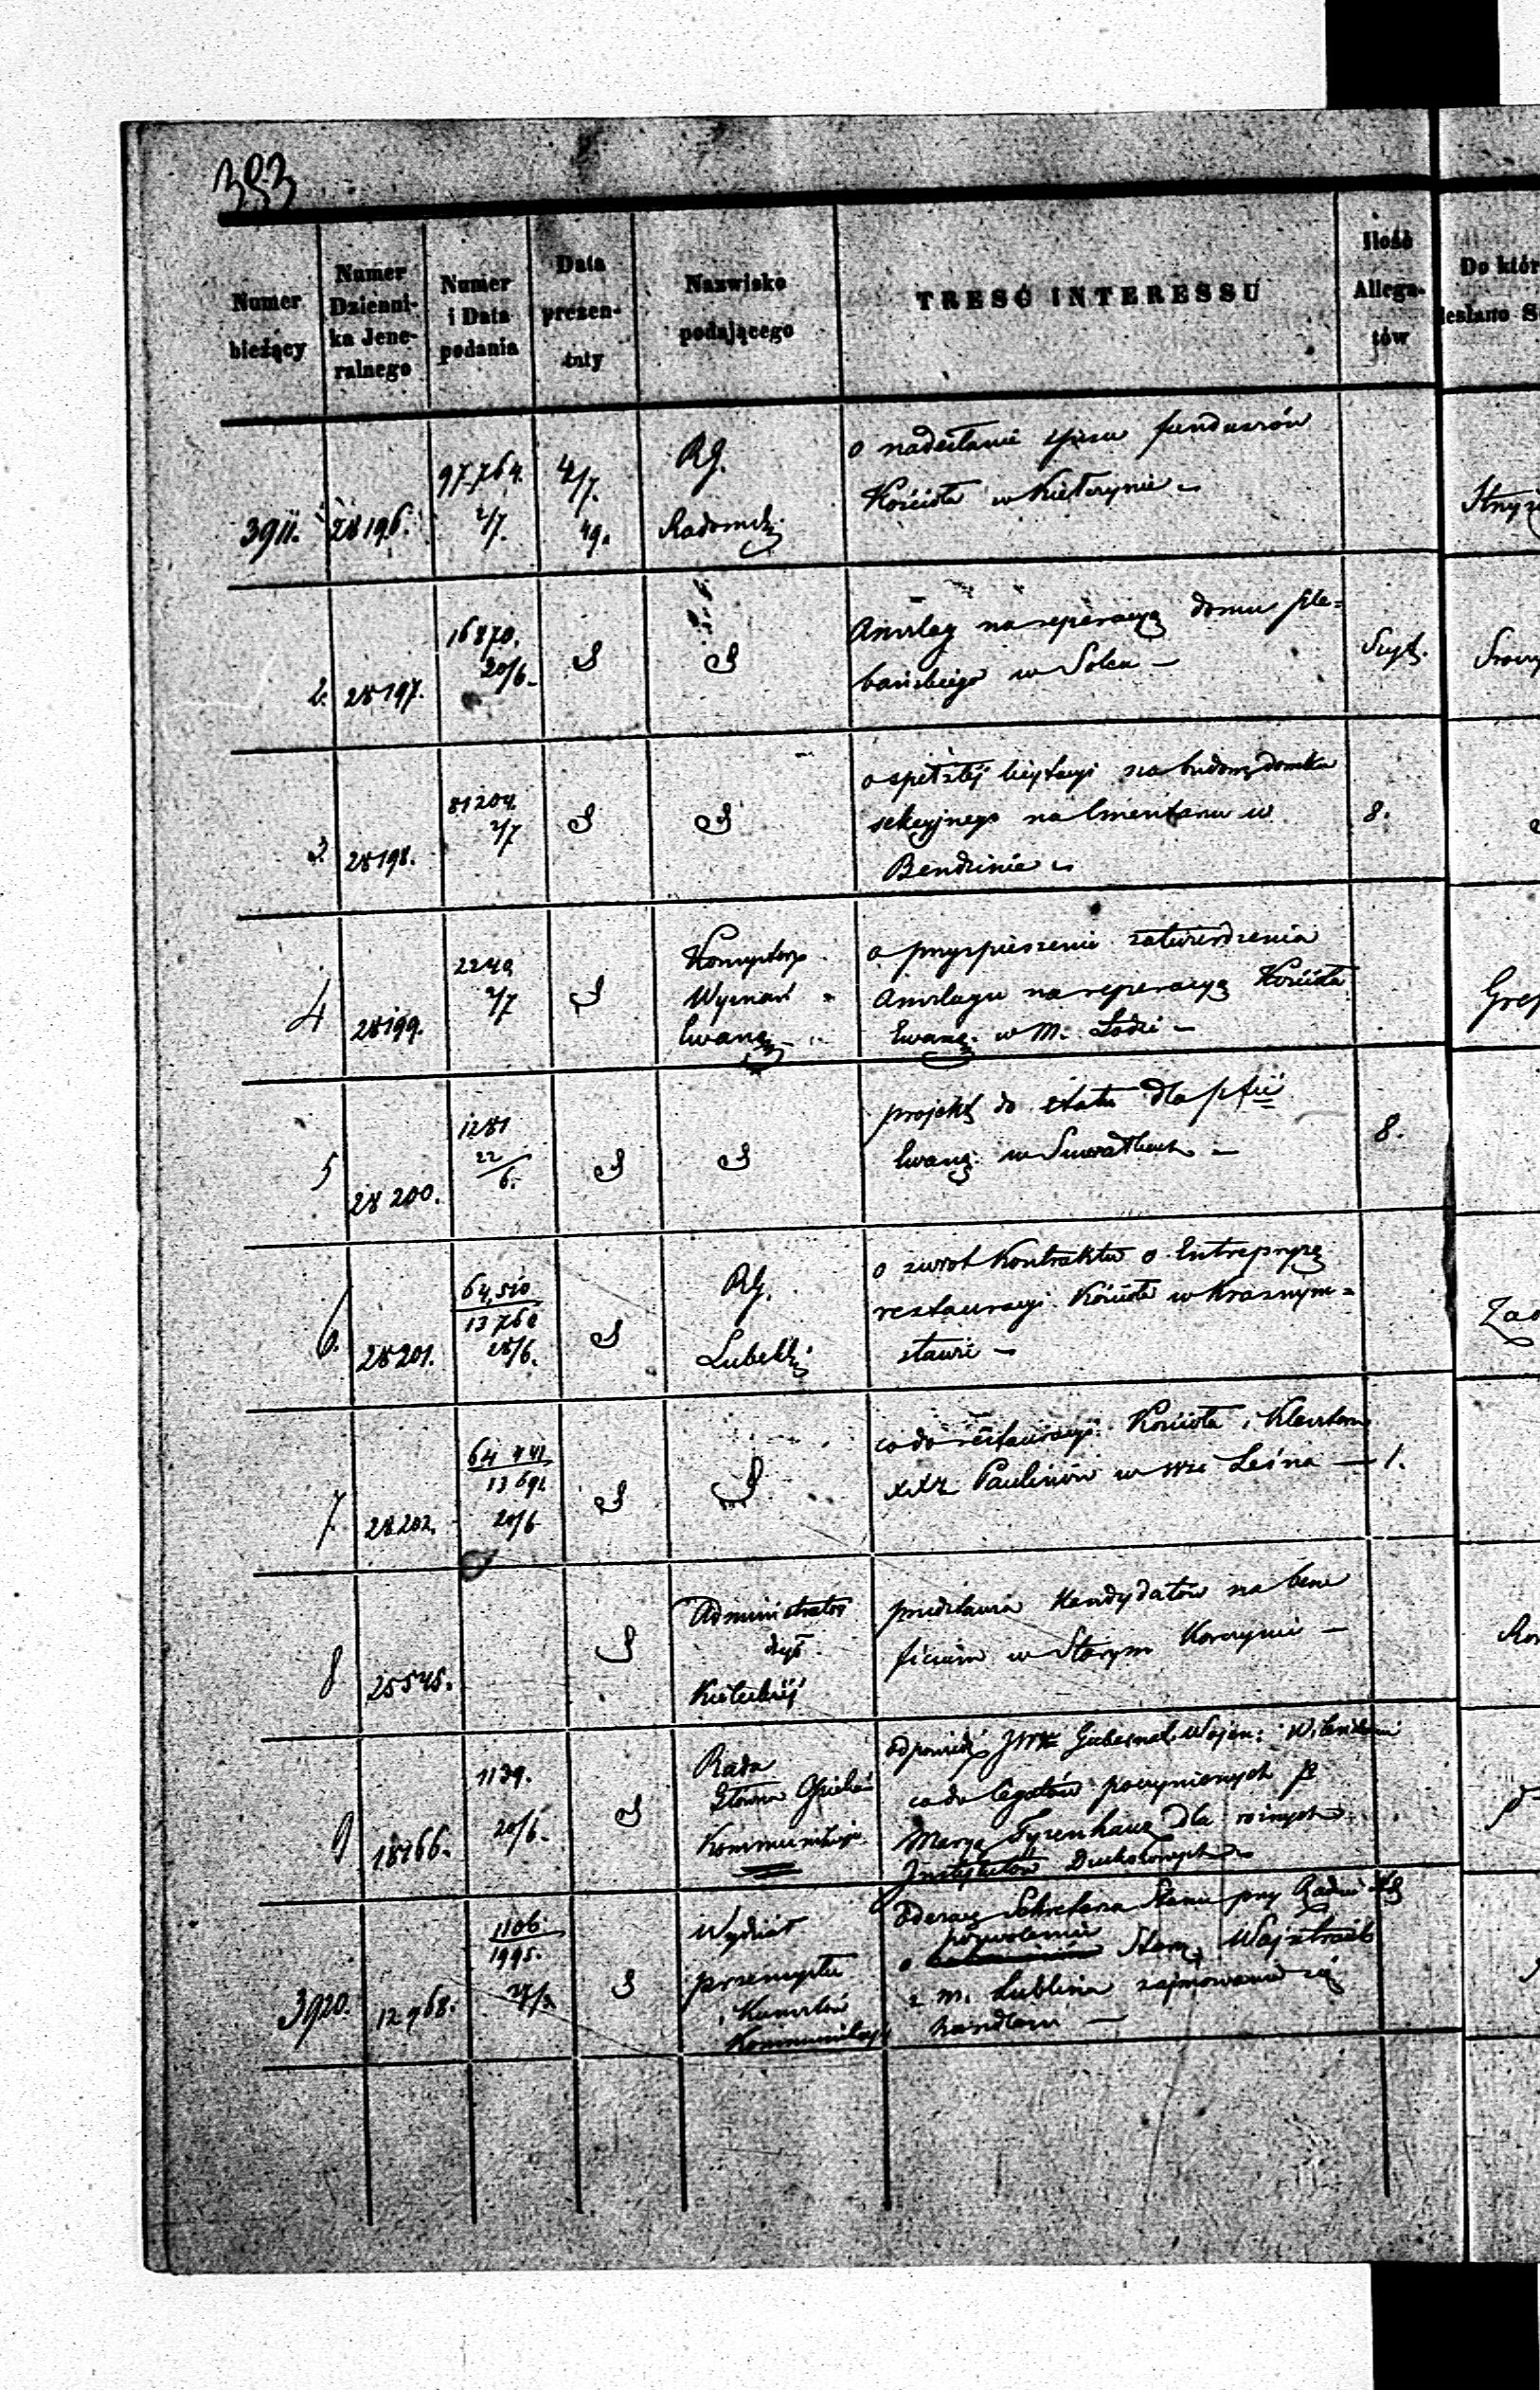 393
Numer
bieżący
Numer
Dzienni-
ka Jene-
ralnego
Numer
i Data
podania
Data
prezen-
tuty
Nazwisko
podającego
TREŚĆ INTERESSU
Ilość
Allega-
tów
Do któr
esłano S
3911. 28196. 97764. 2/7. 4/7. 49. RG. Radomski
o nadesłanie spisu funduszów
Kościoła w
2. 28197. 16870. 20/6.
Anszlag na reperacyą domu ple=
bańskiego w Solcu –
3. 28198. 81204. 2/7
o spełzłej licytacyi na budowę domku
sekcyjnego na Cmentarzu w
Bendzinie
8.
4 28199. 2240 2/7
Konsystorz
Wyznań
Ewang.
o przyspieszenie zatwierdzenia
Anszlagu na reperacyą Kościoła
Ewang. w M. Łodzi –
5 28200. 1281 22/6.
projekt do etatu dla pfii
Ewang. w Suwałkach –
8.
6. 28201. 64,510 13760 28/6.
RG.
Lubelski
o zwrot Kontraktu o Entrepryzę
restauracyi Kościoła w Krasnym=
stawie –
7. 28202. 13691 20/6
co do restauracyi Kościoła i Klasztoru
XXź Paulinów w wsi Leśna –
1.
8 25545.
Administrator
dyec.
Kieleckiej
przedstawia Kandydatów na bene
ficium w Starym Korczynie –
9 18766. 1139. 20/6.
Rada
Główna Opiekuń
Kommunikuje
odpowiedź JW Gubernat. Wojen: Wileńskiego
co do legatów poczynionych p
Maryą Tyzenhauz dla różnych
Instytutów Duchownych
3920. 12968. 1106 1995.
Wydział
przemysłu
i Kunsztów
Kommunikuje
odezwę Sekretarza Stanu przy Radzie
pozwolenie
o
z m. Lublina zajmowania się
handlem –